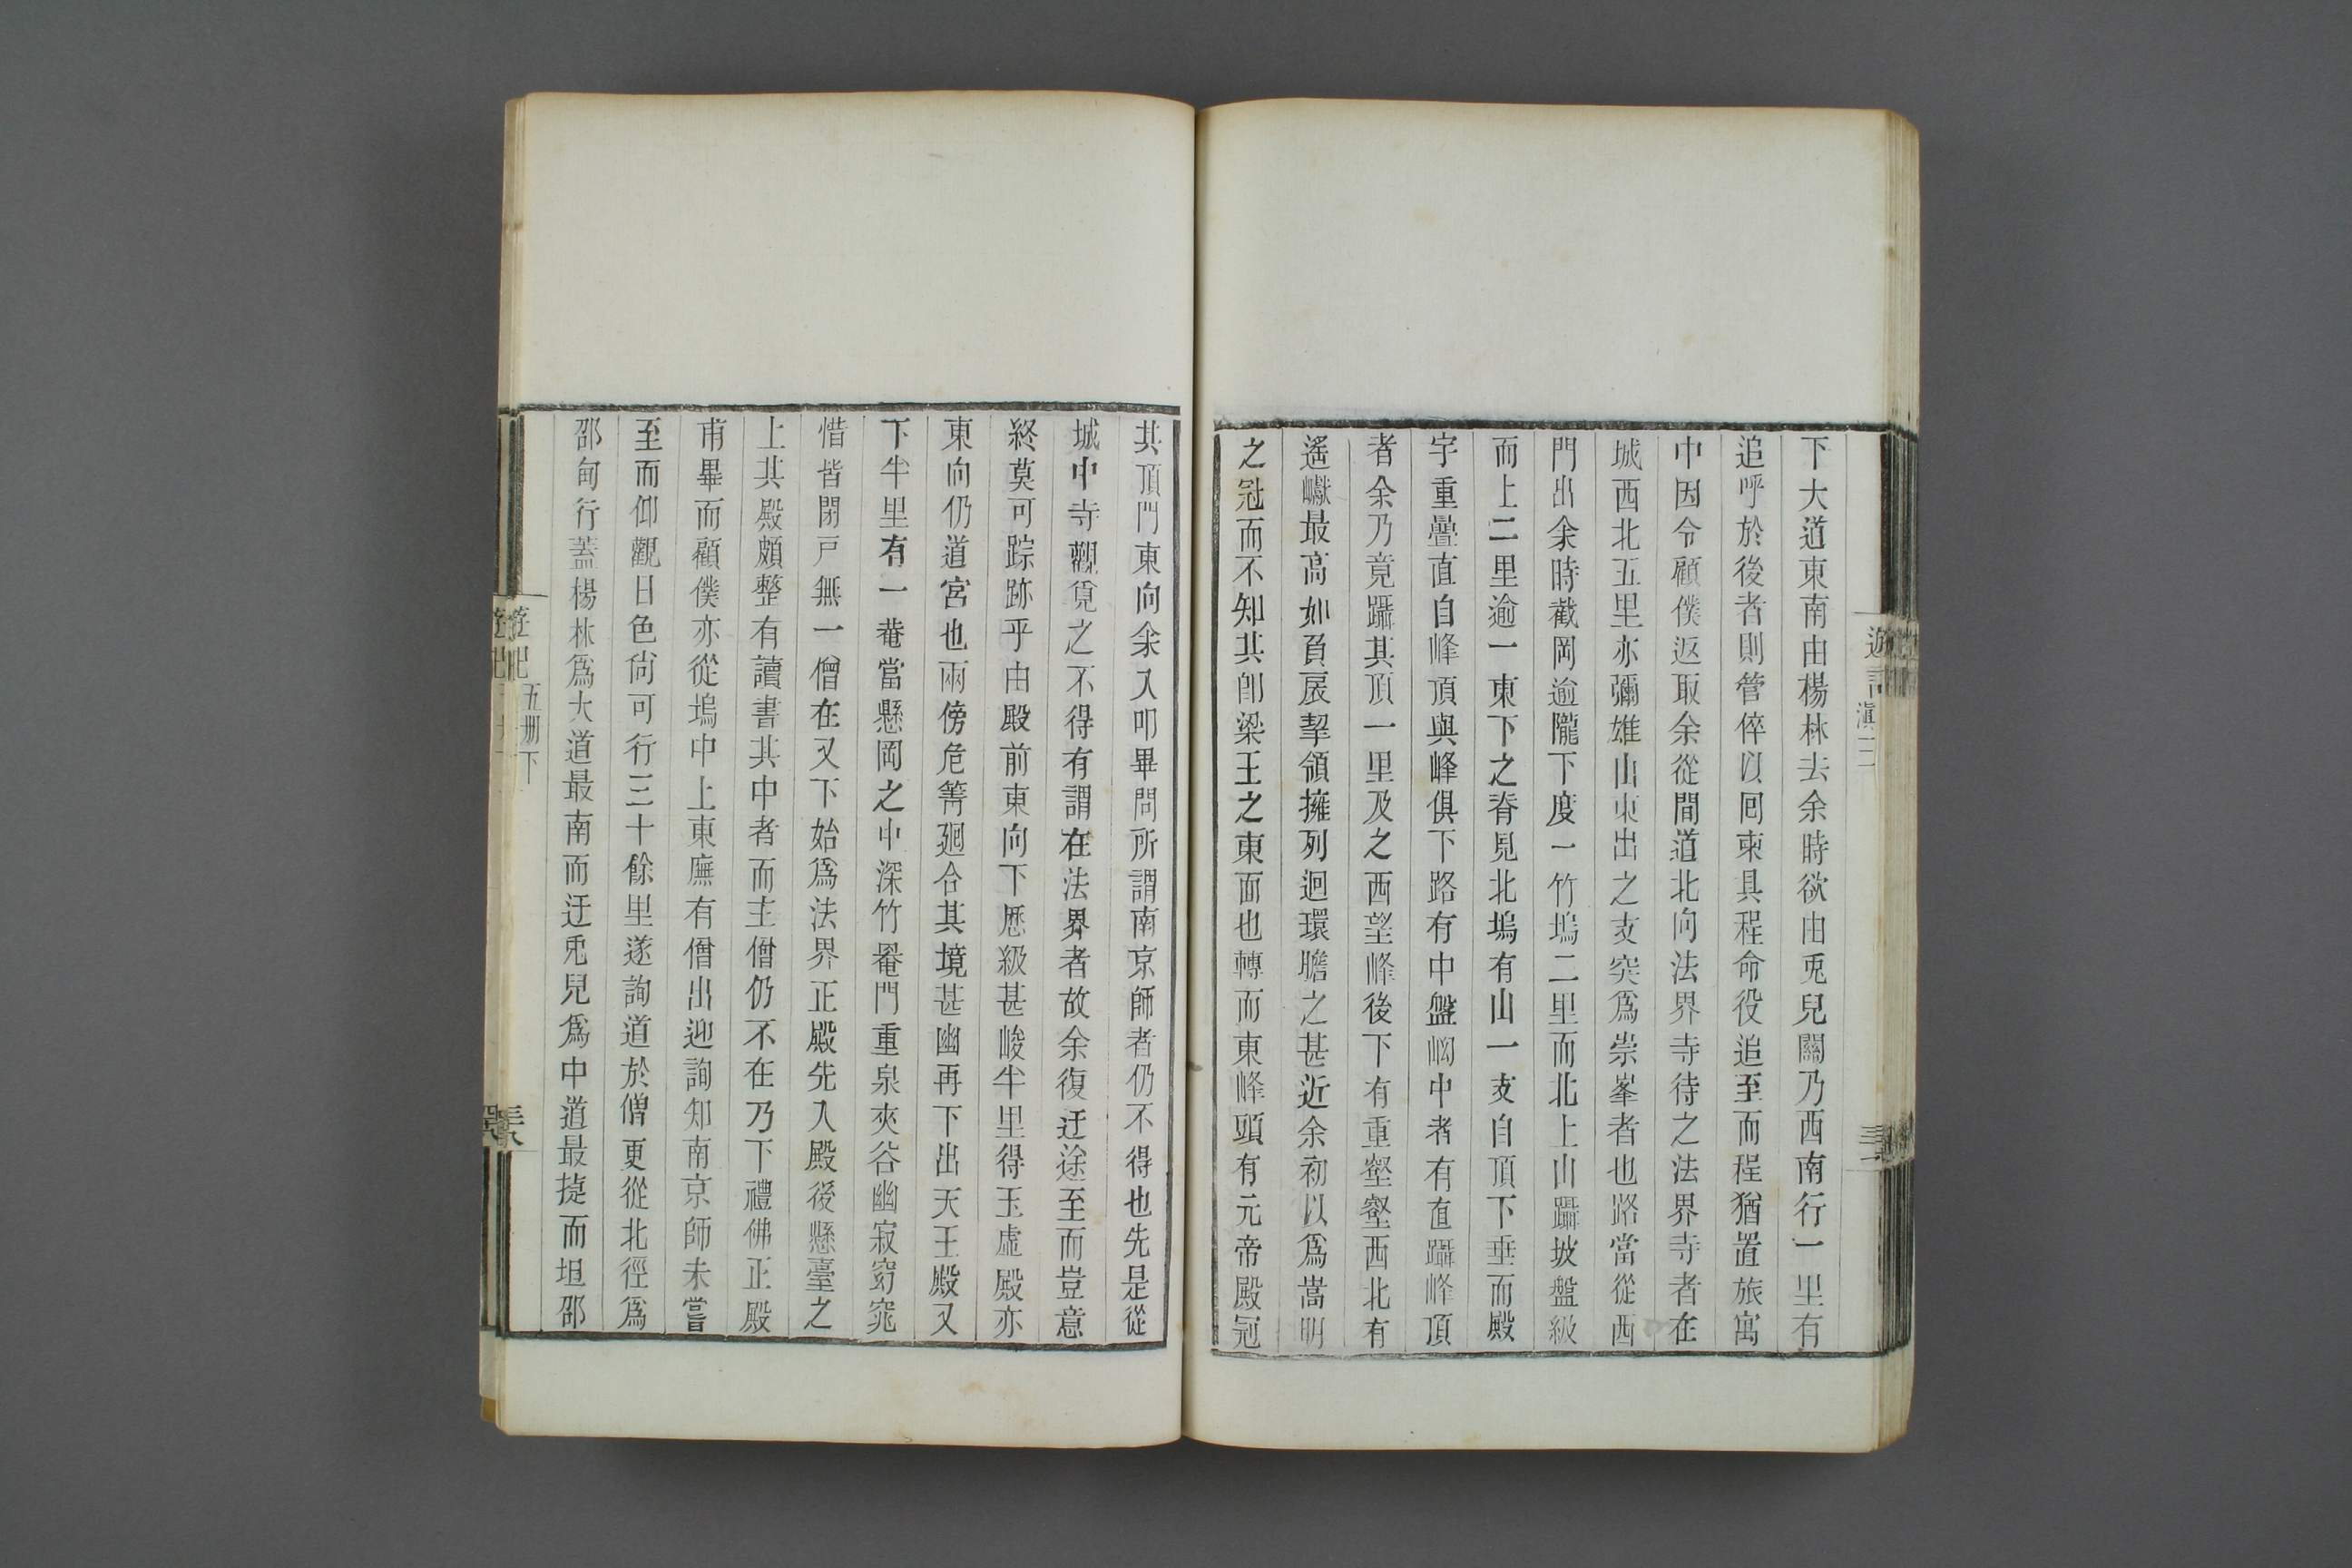 下大道東南由楊林去余時欲由兎兒關乃西南行一里有
追呼於後者則管倅以囘柬具程命役追至而程猶置旅寓
中因令顧僕返取余從間道北向法界寺待之法界寺者在
城西北五里亦彌雄山東出之支突爲崇峯者也路當從西
門出余時截岡逾隴下度一竹塢二里而北上山躡坡盤級
而上二里逾一東下之脊見北塢有山一支自頂下垂而殿
宇重疊直自峰頂與峰俱下路有中盤㘭中者有直躡峰頂
者余乃竟躡其頂一里及之西望峰後下有重壑壑西北有
遙巘最高如負扆挈領擁列迴環瞻之甚近余初以爲嵩明
之冠而不知其卽梁王之東面也轉而東峰頭有元帝殿冠
其頂門東向余入叩畢問所謂南京師者仍不得也先是從
城中寺觀覓之不得有謂在法界者故余復迂途至而豈意
終莫可踪跡乎由殿前東向下歷級甚峻半里得玉虛殿亦
東向仍道宮也兩傍危箐廻合其境甚幽再下出天王殿又
下半里有一菴當懸岡之中深竹罨門重泉夾谷幽寂窈窕
惜皆閉戸無一僧在又下始爲法界正殿先入殿後懸臺之
上其殿頗整有讀書其中者而主僧仍不在乃下禮佛正殿
甫畢而顧僕亦從塢中上東廡有僧出迎詢知南京師未嘗
至而仰觀日色尙可行三十餘里遂詢道於僧更從北徑爲
邵甸行蓋楊林爲大道最南而迂兎兒爲中道最捷而坦邵
五册下